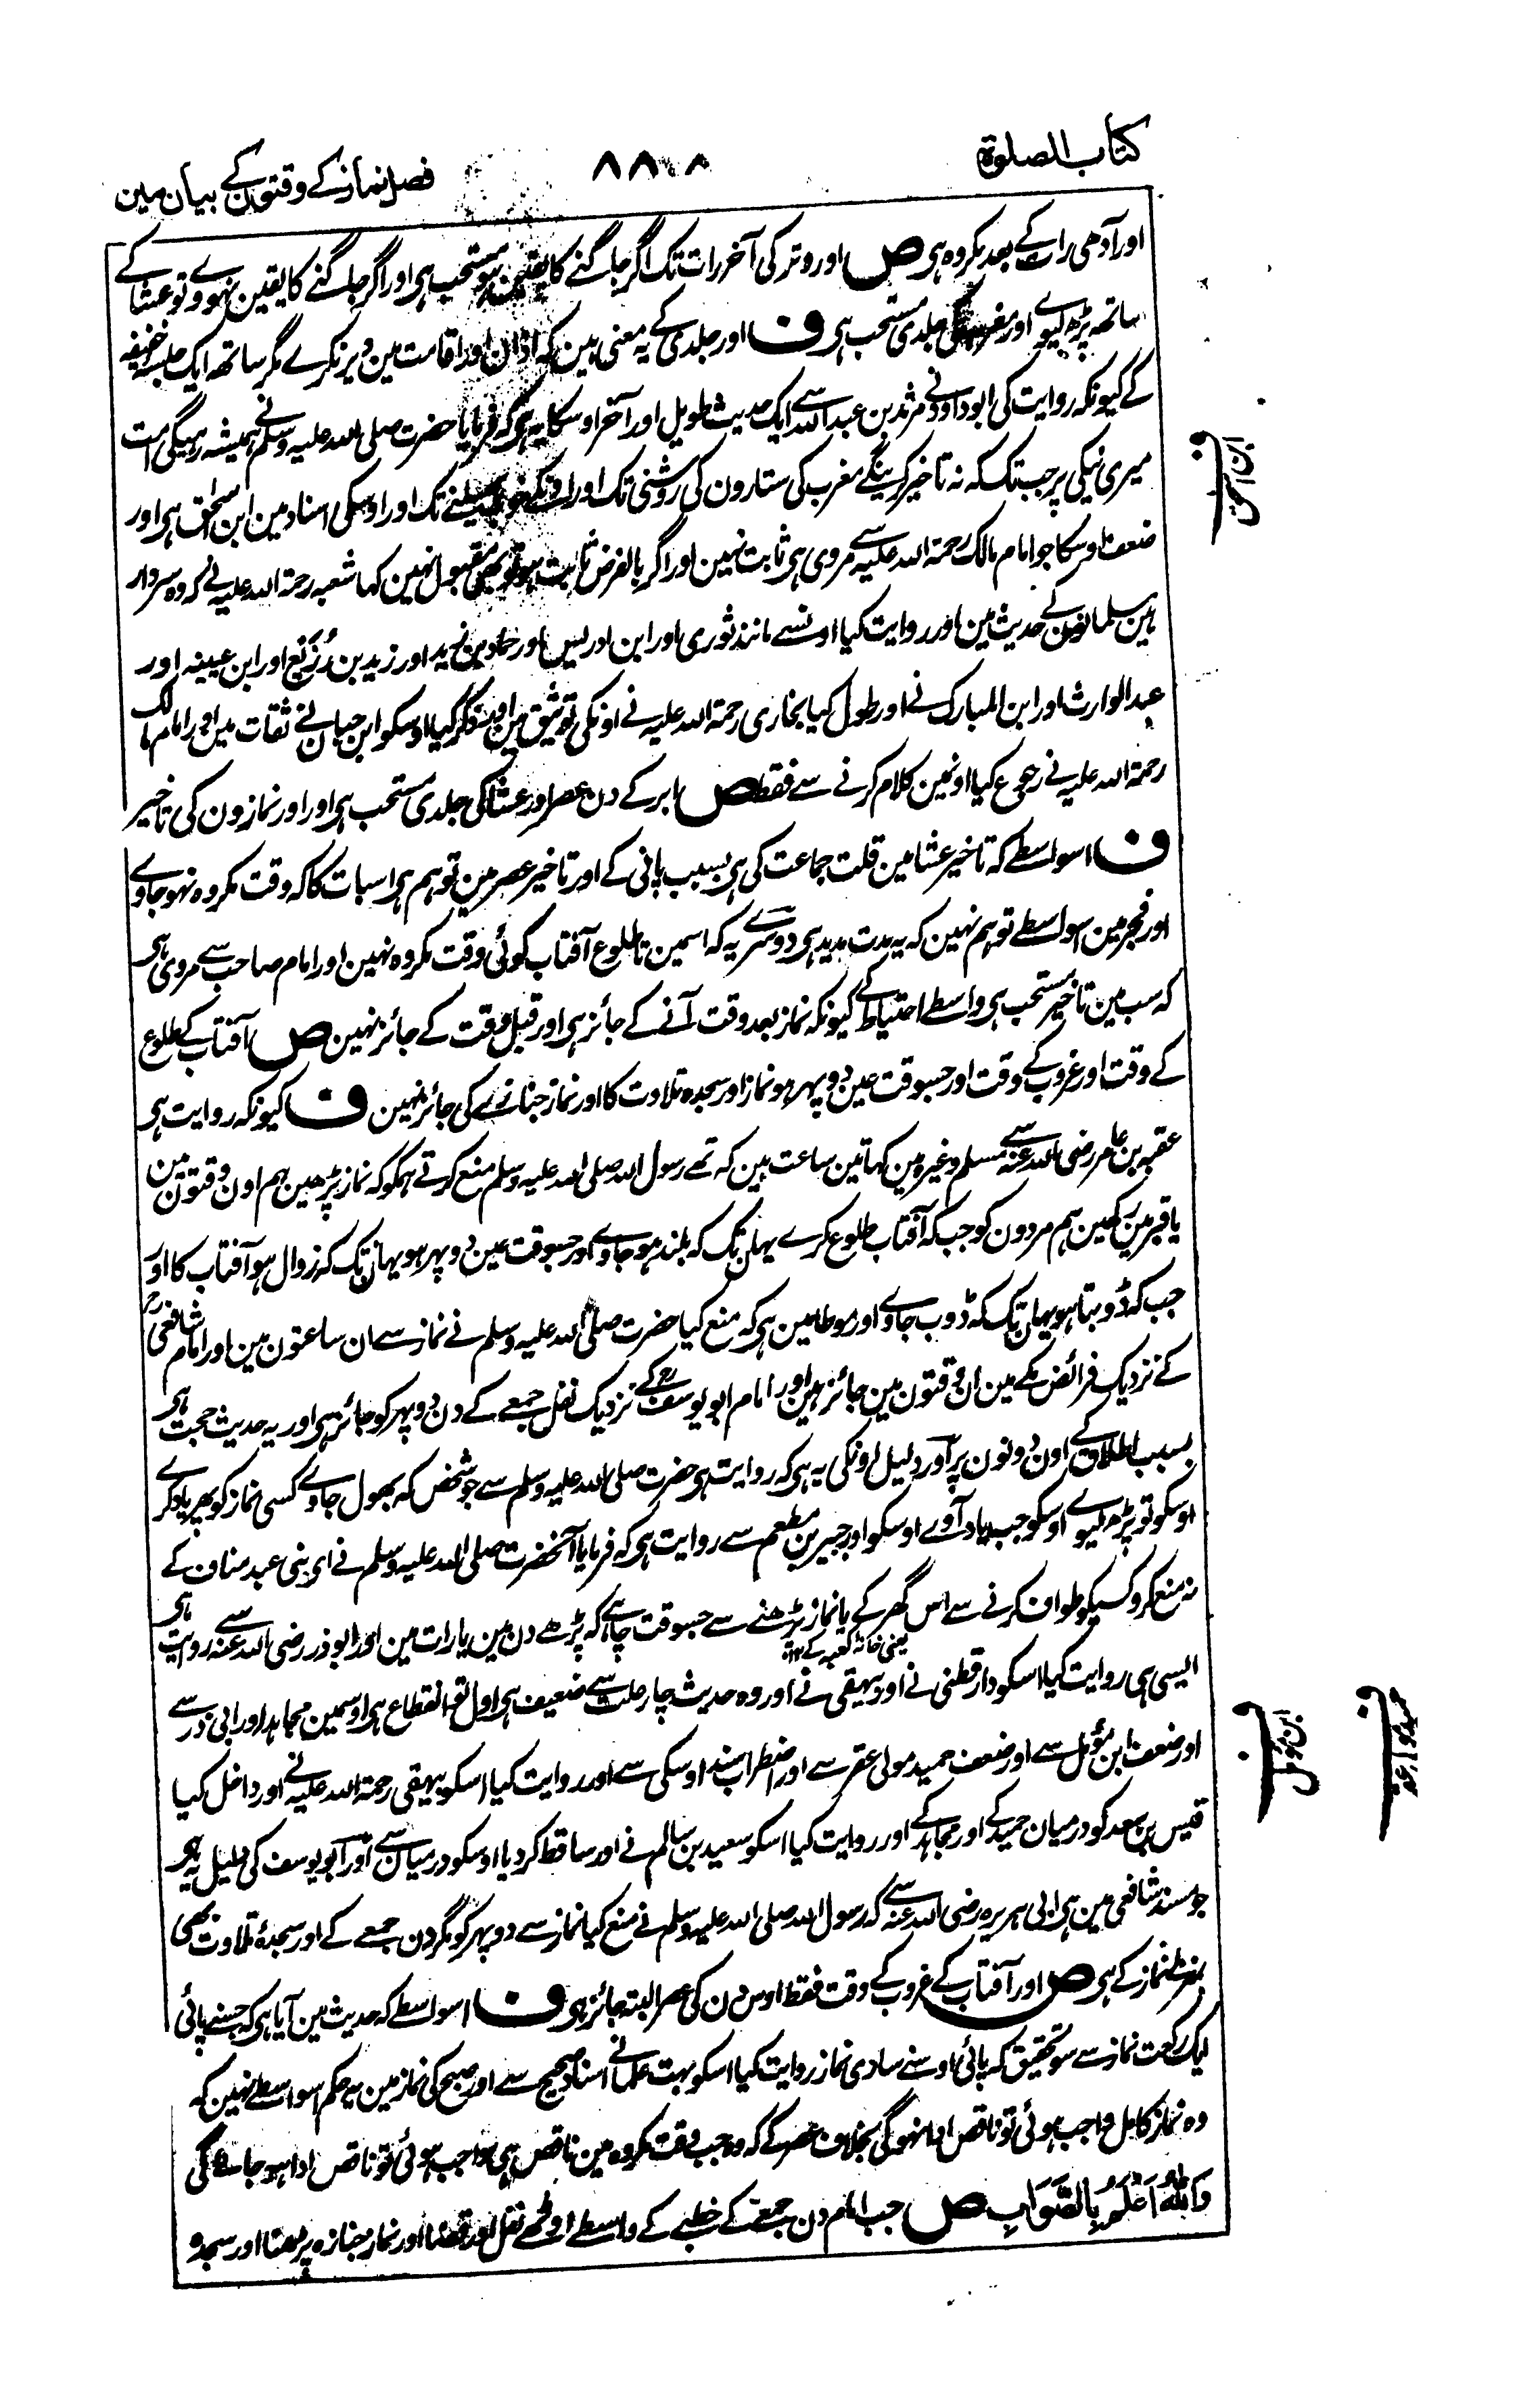 کتاب الصلوۃ
۸۸
فصل نماز کے وقتون کے بیان مین
اور آدھی رات کے بعد مکروہ ہی ص اور وتر کی آخر رات تک اگر جاگنے کا یقین ہو مستحب ہی اور اگر جاگنے کا یقین نہووے تو عشا کے
ساتھ پڑھ لیوے اور مغرب کی جلدی مستحب ہی ف اور جلدی کے یہ معنی ہین کہ اذان اور اقامت مین دیر نکرے مگر ساتھ ایک جلسہ خفیفہ
کے کیونکہ روایت کی ابوداود نے مرثد بن عبداللہ سے ایک حدیث طویل اور آخر اوسکا یہ ہی کہ فرمایا حضرت صلی اللہ علیہ وسلم نے ہمیشہ رہیگی امت
میری نیکی پر جب تک کہ نہ تاخیر کرینگے مغرب کی ستارون کی روشنی تک اور اونکے خوب تک اور اوسکی اسناد مین ابن اسحٰق ہی اور
ضعف اوسکا جو امام مالک رحمۃ اللہ علیہ سے مروی ہی ثابت نہین اور اگر بالفرض ثابت ہو تو بھی مقبول نہین کہا شعبہ رحمۃ اللہ علیہ نے کہ وہ سردار
ہین مسلمانون کے حدیث مین اور روایت کیا اونسے مانند ثوری اور ابن ادریس اور حماد بن زید اور زید بن زُرَیع اور ابن عیینہ اور
عبد الوارث اور ابن المبارک نے اور طول کیا بخاری رحمۃ اللہ علیہ نے اونکی توثیق مین اور ذکر کیا اوسکو ابن حبان نے ثقات مین اور امام مالک
رحمۃ اللہ علیہ نے رجوع کیا اونمین کلام کرنے سے فقط ص ابر کے دن عصر اور عشا کی جلدی مستحب ہی اور اور نمازون کی تاخیر
ف اسواسطے کہ تاخیر عشا مین قلت جماعت کی ہی بسبب پانی کے اور تاخیر عصر مین توہم ہی اسبات کا کہ وقت مکروہ نہو جاوے
اور فجر مین اسواسطے توہم نہین کہ یہ مدت مدید ہی دوسرے یہ کہ اسمین تا طلوع آفتاب کوئی وقت مکروہ نہین اور امام صاحب سے مروی ہی
کہ سب مین تاخیر مستحب ہی واسطے احتیاط کے کیونکہ نماز بعد وقت آنے کے جائز ہی اور قبل وقت کے جائز نہین ص آفتاب کے طلوع
کے وقت اور غروب کے وقت اور جسوقت عین دوپہر ہو نماز اور سجدہ تلاوت کا اور نماز جنازے کی جائز نہین ف کیونکہ روایت ہی
عقبہ بن عامر رضی اللہ عنہ سے مسلم وغیرہ مین کہا تین ساعت ہین کہ تھے رسول اللہ صلی اللہ علیہ وسلم منع کرتے ہمکو کہ نماز پڑھین ہم اون وقتون مین
یا قبر مین رکھین ہم مردون کو جب کہ آفتاب طلوع کرے یہان تک کہ بلند ہو جاوے اور جسوقت عین دوپہر ہو یہان تک کہ زوال ہو آفتاب کا اور
جب کہ ڈوبتا ہو یہان تک کہ ڈوب جاوے اور موطا مین ہی کہ منع کیا حضرت صلی اللہ علیہ وسلم نے نماز سے ان ساعتون مین اور امام شافعی رح
کے نزدیک فرائض مکے مین ان وقتون مین جائز ہین اور امام ابو یوسف رح کے نزدیک نفل جمعے کے دن دوپہر کو جائز ہی اور یہ حدیث حجت ہی
بسبب اطلاق کے اون دونون پر اور دلیل اونکی یہ ہی کہ روایت ہی حضرت صلی اللہ علیہ وسلم سے جو شخص کہ بھول جاوے کسی نماز کو پھر یاد کرے
اوسکو تو پڑھ لیوے اوسکو جب یاد آوے اوسکو اور جبیر بن مطعم سے روایت ہی کہ فرمایا آنحضرت صلی اللہ علیہ وسلم نے ای بنی عبد مناف کے
نہ منع کرو کسیکو طواف کرنے سے اس گھر کے یا نماز پڑھنے سے جسوقت چاہے کہ پڑھے دن مین یا رات مین اور ابوذر رضی اللہ عنہ سے روایت ہی
یعنی خانہ کعبہ کے ۱۲
ایسی ہی روایت کیا اسکو دارقطنی نے اور بیہقی نے اور وہ حدیث چار علت سے ضعیف ہی اول تو انقطاع ہی اوسمین مجاہد اور ابی ذر سے
اور ضعف ابن مؤمل سے اور ضعف حمید مولی عفر سے اور اضطراب سند اوسکی سے اور روایت کیا اسکو بیہقی رحمۃ اللہ علیہ نے اور داخل کیا
قیس بن سعد کو درمیان حمید کے اور مجاہد کے اور روایت کیا اسکو سعید بن سالم نے اور ساقط کر دیا اوسکو درمیان سے اور ابو یوسف کی دلیل یہ ہی
جو مسند شافعی مین ہی ابی ہریرہ رضی اللہ عنہ سے کہ رسول اللہ صلی اللہ علیہ وسلم نے منع کیا نماز سے دوپہر کو مگر دن جمعے کے اور سجدۂ تلاوت بھی
بمنزلہ نماز کے ہی ص اور آفتاب کے غروب کے وقت فقط اوس دن کی عصر البتہ جائز ہی ف اسواسطے کہ حدیث مین آیا ہی کہ جسنے پائی
ایک رکعت نماز سے سو تحقیق کہ پائی اوسنے ساری نماز روایت کیا اسکو بہت علما نے اسناد صحیح سے اور صبح کی نماز مین یہ حکم اسواسطے نہین کہ
وہ نماز کامل واجب ہوئی تو ناقص ادا نہو گی بخلاف عصر کے کہ وہ جب وقت مکروہ مین ناقص ہی واجب ہوئی تو ناقص ادا ہو جائے گی
وَاللهُ اَعْلَمُ بِالصَّوَابِ ص جب امام دن جمعے کے خطبے کے واسطے اوٹھے نفل اور قضا اور نماز جنازہ پڑھنا اور سجدہ
ف ابن اسحٰق
ف ابن مؤمل
ف